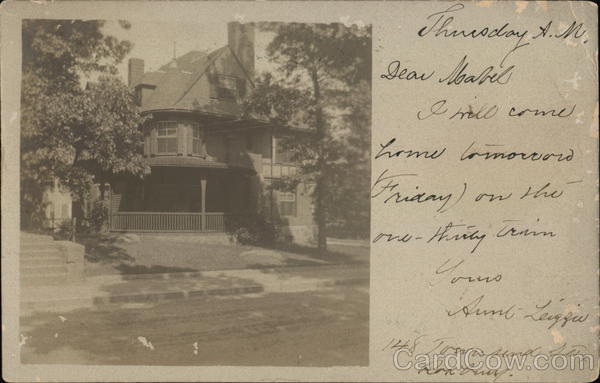 Thursday A.M.
Dear Mabel
I will come
home tomorrow
(Friday) on the
one-thirty train
Yours
Aunt Lizzie
148 Townsend St.
Roxbury.
CardCow.com